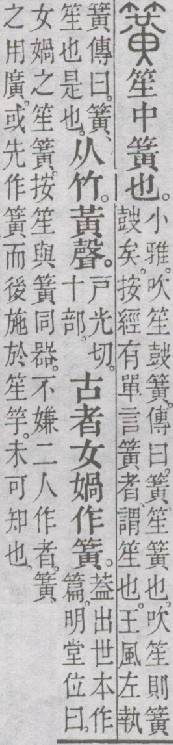 笙中簧也。
小雅。吹笙鼓簧。傳曰。簧、笙簧也。吹笙則簧
鼓矣。按經有單言簧者、謂笙也。王風左執
簧傳曰。簧、
笙也是也。
从竹。黃聲。
戶光切。
十部。
古者女媧作簧。
蓋出世本作
篇。明堂位曰。
女媧之笙簧。按笙與簧同器。不嫌二人作者。簧
之用廣。或先作簧而後施於笙竽。未可知也。